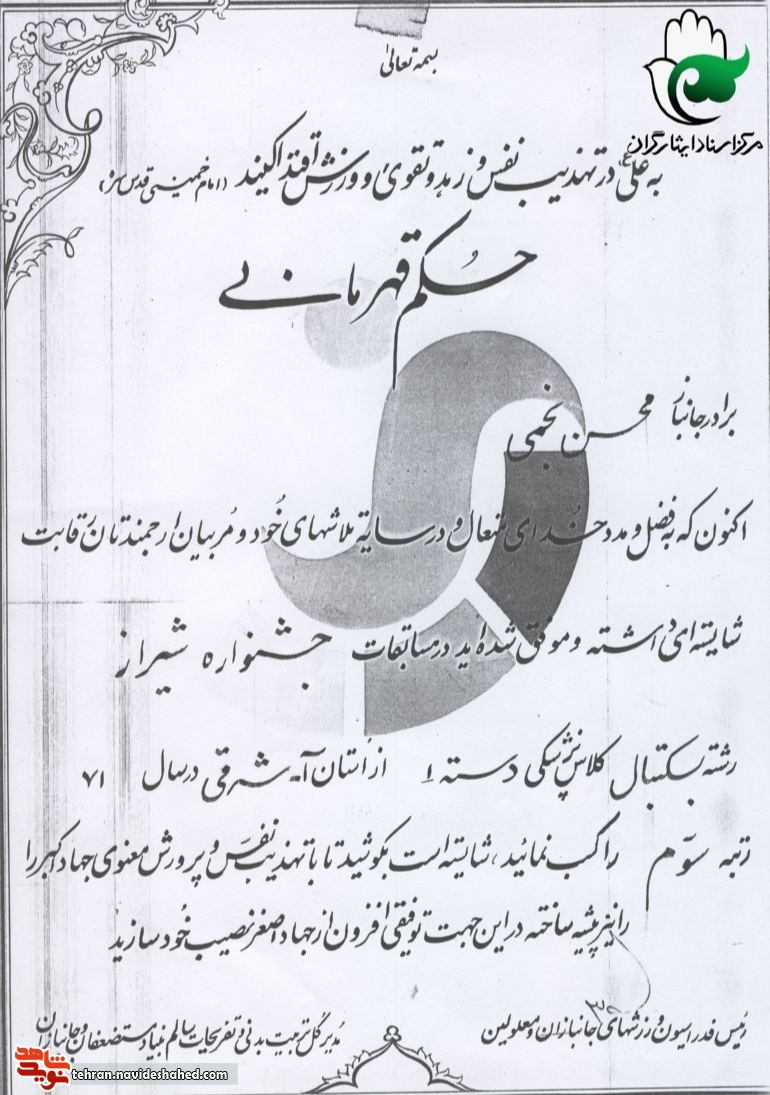 بسمه تعالی
مرکز اسناد ایثارگران
به علی (ع) در تهذیب نفس و زهد و تقوی و ورزش اقتدا کنید (امام خمینی قدس سره)
حکم قهرمانی
برادر جانباز محسن نجمی
اکنون که به فضل و مدد خدای متعال و در سایه تلاشهای خود و مربیان ارجمندتان رقابت
شایسته‌ای داشته و موفق شده‌اید در مسابقات جشنواره شیراز
رشته بسکتبال کلاس پزشکی دسته ۱ از استان آ-شرقی در سال ۷۱
رتبه سوم را کسب نمائید، شایسته است بکوشید تا با تهذیب نفس و پرورش معنوی جهاد اکبر را
را نیز پیشه ساخته در این جهت توفیقی افزون از جهاد اصغر نصیب خود سازید
رئیس فدراسیون ورزشهای جانبازان و معلولین
مدیر کل تربیت بدنی و تفریحات سالم بنیاد مستضعفان و جانبازان
نوید شاهد
tehran.navideshahed.com